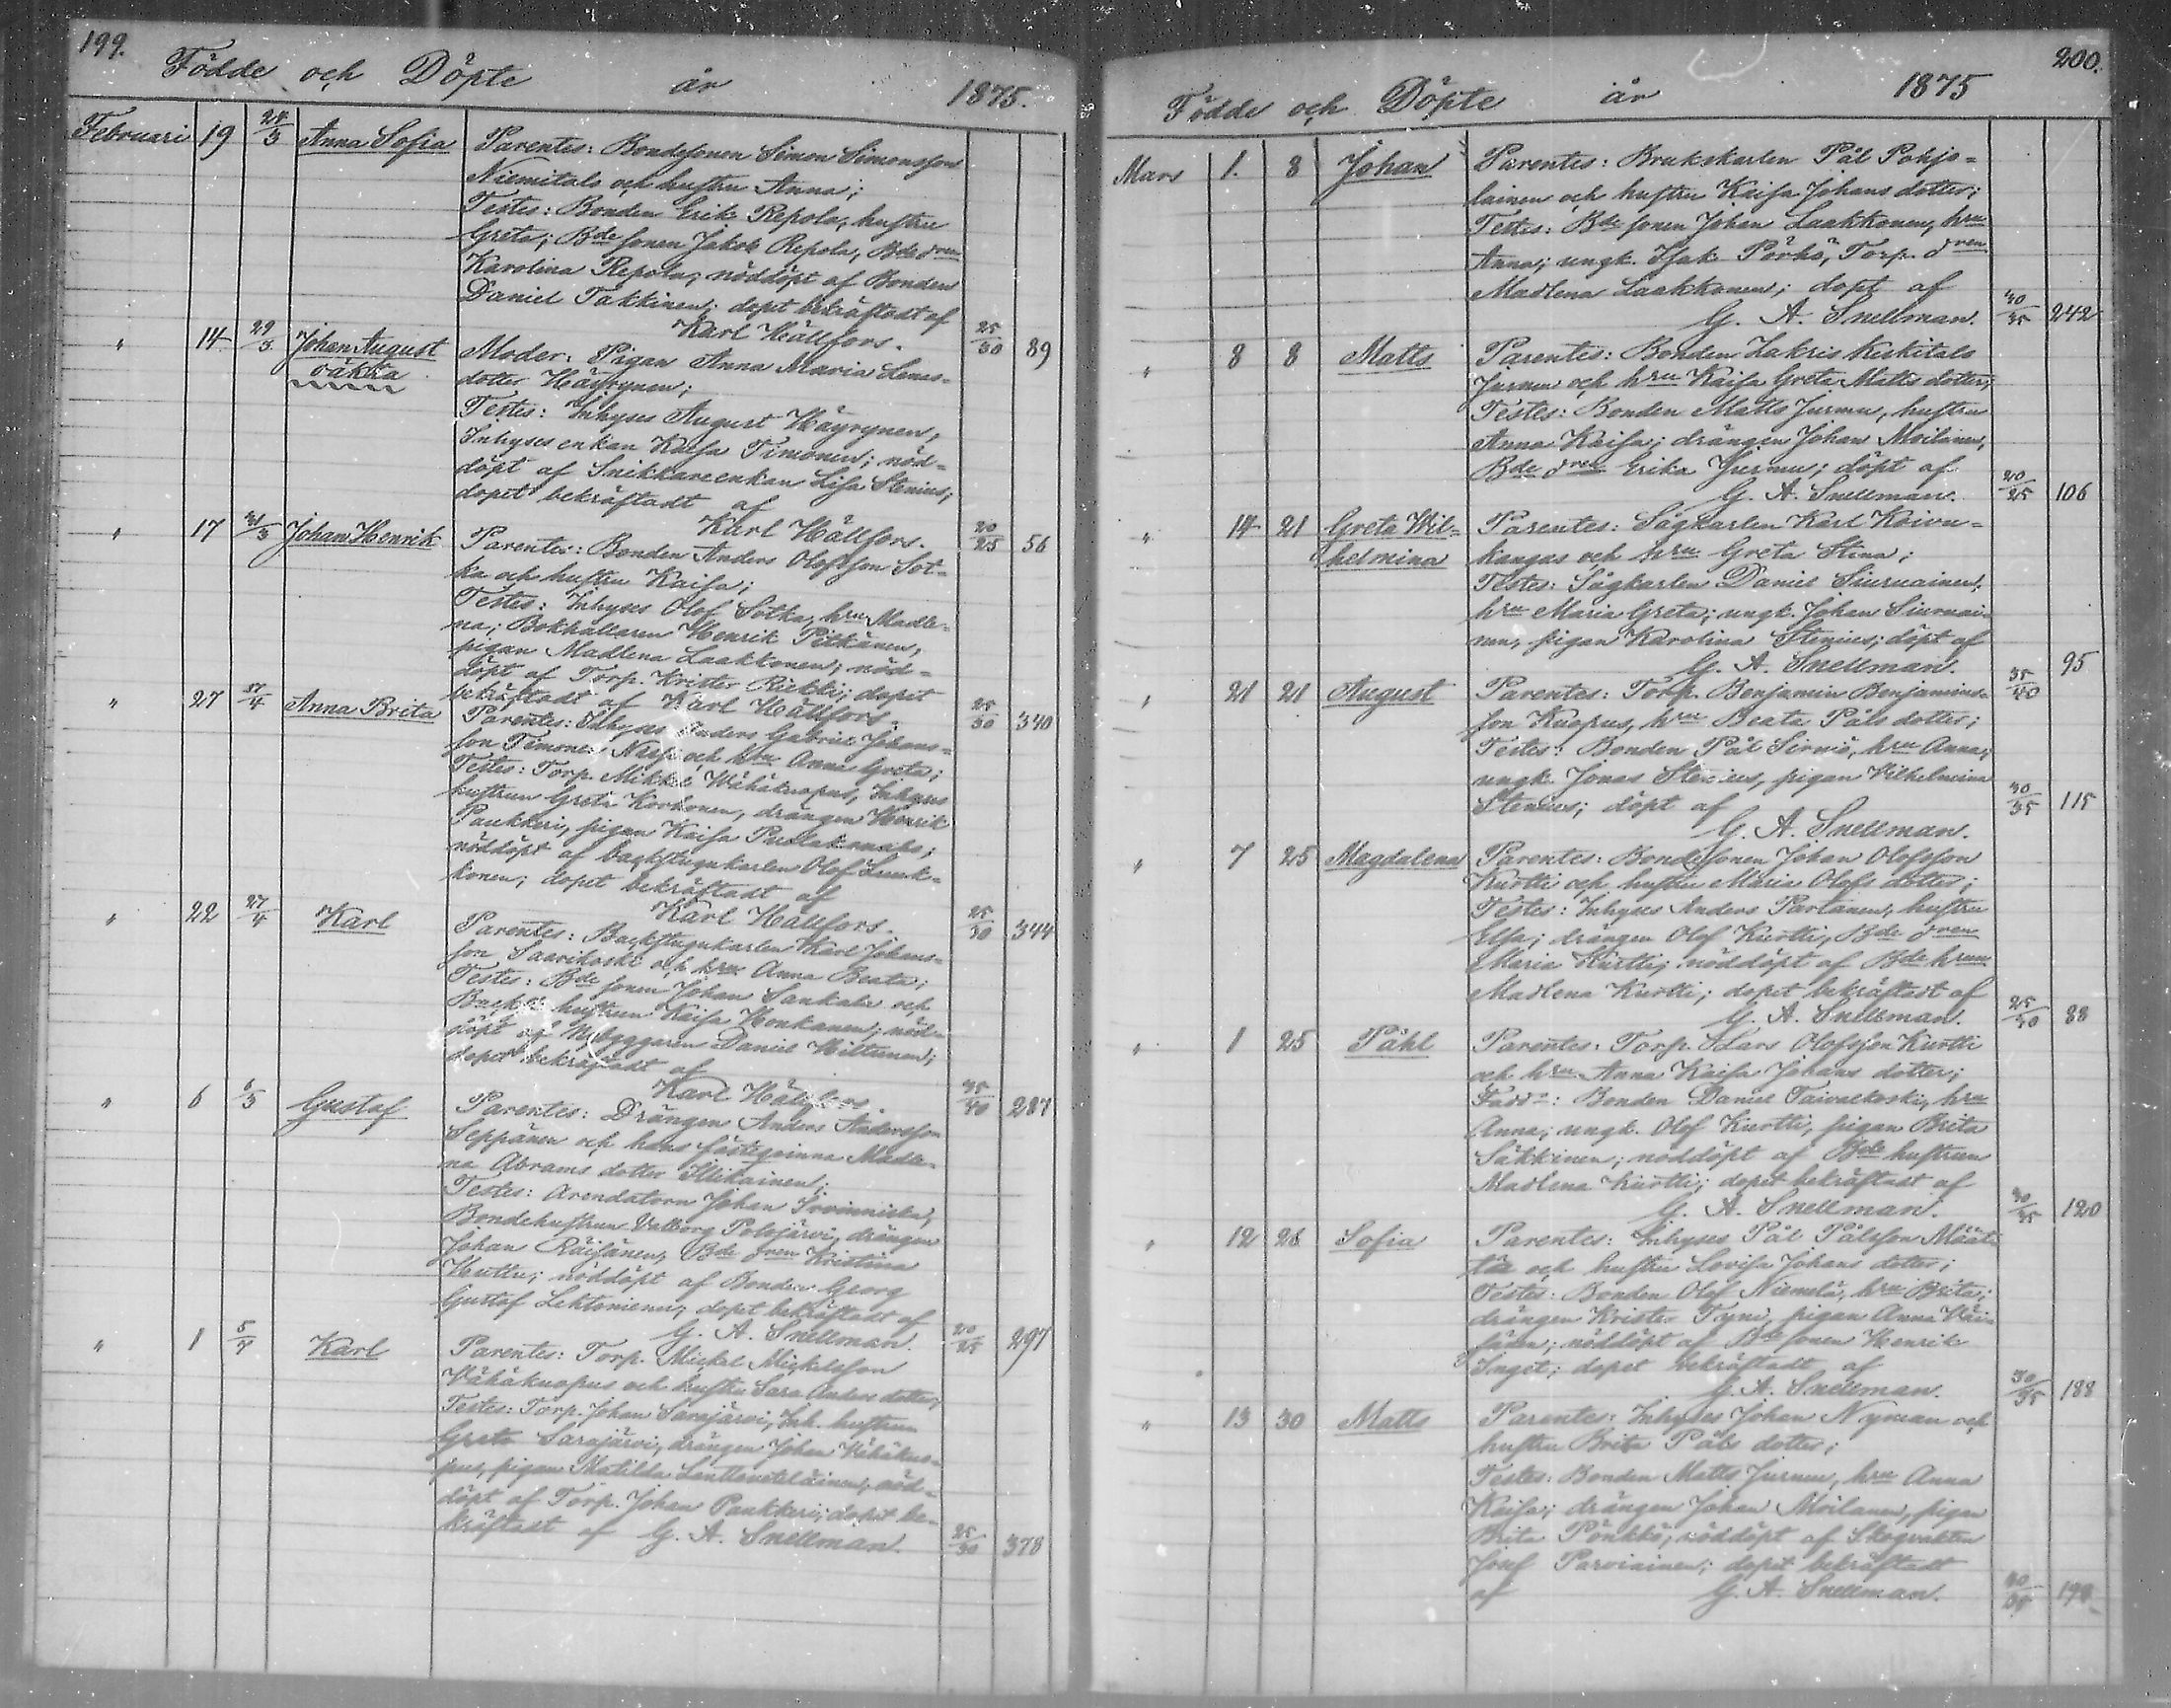 199.
Födde och Döpte år 1875.
Februari 19 28/3 Anna Sofia Parentes: Bondesonen Simon Simonsson
Niemitalo och hustru Anna;
Testes: Bonden Erik Repola, hustru
Greta; Bde sonen Jakob Repola, Bde dren
Karolina Repola; nöddöpt af Bonden
Daniel Takkinen; dopet bekräftadt af
Karl Hällfors. 25/30 89
" 14 29/3 Johan August Moder: Pigan Anna Maria Lenas-
oäkta dotter Häyrynen;
Testes: Inhyses August Häyrynen,
Inhyses enkan Kaisa Timonen; nöd-
döpt af Snikkareenkan Lisa Stenius;
dopet bekräftadt af
Karl Hällfors. 20/25 56
" 17 31/3 Johan Henrik Parentes: Bonden Anders Olofsson Sot-
ka och hustru Kaisa;
Testes: Inhyses Olof Sotka, hru Madle-
na; Bokhållaren Henrik Pitkänen,
pigan Madlena Laakkonen; nöd-
döpt af Torp. Krister Riekki; dopet
bekräftadt af Karl Hällfors. 25/30 340
" 27 /4 Anna Brita Parentes: Inhyses Anders Gabriel Johans-
son Timonen och hru Anna Greta;
Testes: Torp. Mikkel Wähäkuopus, Inhyses
hustrun Greta Korhonen, drängen Henrik
Paukkeri, pigan Kaisa
nöddöpt af backstugukarlen Olof
konen; dopet bekräftadt af
Karl Hällfors. 25/30 344
" 22 27/4 Karl Parentes: Backstugukarlen Karl Johans-
son Saarikoski och hru Anna Beata;
Testes: Bde sonen Johan Sankala och
hustrun Kaisa Honkanen; nöd-
döpt af Daniel Hiltunen;
dopet bekräftadt af
Karl Hällfors. 35/40 287
" 6 /5 Gustaf Parentes: Drängen Anders Andersson
Seppänen och hans fästeqvinna Madle-
na Abrams dotter Illikainen;
Testes: Arendatorn Johan
Bondehustrun Valborg Polojärvi, drängen
Johan Räisänen, Bde dren Kristina
Huttu; nöddöpt af Bonden Georg
Gustaf Lehtoniemi; dopet bekräftadt af
G. A. Snellman. 20/25 297
" 1 5/ Karl Parentes: Torp. Mickel Mickelsson
Vähäkuopus och hustru Sara Anders dotter;
Testes: Torp. Johan Sarajärvi, Inh. hustrun
Greta Sarajärvi, drängen Johan Vähäkuo-
pus, pigan Matilda nöd-
döpt af Torp. Johan Paukkeri; dopet be-
kräftadt af G. A. Snellman. 25/30 378
200.
Födde och Döpte år 1875
Mars 1. 8 Johan Parentes: Brukskarlen Pål Pohjo-
lainen och hustru Kaisa Johans dotter;
Testes: Bde sonen Johan Laakkonen, hru
Anna; ungk. Isak Pörhö, Torp. dren
Madlena Laakkonen; döpt af
G. A. Snellman. 30/35 242
" 8 8 Matts Parentes: Bonden Zakris Keskitalo
Jurmu och hru Kaisa Greta Matts dotter;
Testes: Bonden Matts Jurmu, hustru
Anna Kaisa; drängen Johan Moilanen,
Bde dren Erika Jurmu; döpt af
G. A. Snellman. 20/25 106
" 14 21 Greta Wil- Parentes: Sågkarlen Karl Koivu-
helmina kangas och hru Greta Stina;
Testes: Sågkarlen Daniel Siuruainen,
hru Maria Greta; ungk. Johan Siuruai-
nen, pigan Karolina Stenius; döpt af
G. A. Snellman. 35/40 95
" 21 21 August Parentes: Torp. Benjamin Benjamins-
son Kuopus, hru Beata Påls dotter;
Testes: Bonden Pål Sirviö, hru Anna;
ungk. Jonas Stenius, pigan Vilhelmina
Stenius; döpt af
G. A. Snellman. 30/35 115
" 7 25 Magdalena Parentes: Bondesonen Johan Olofsson
Kurtti och hustru Maria Olofs dotter;
Testes: Inhyses Anders Partanen, hustru
Elsa; drängen Olof Kurtti, Bde dren
Maria Kurtti; nöddöpt af Bde hrun
Madlena Kurtti; dopet bekräftadt af
G. A. Snellman. 25/30 88
" 1 25 Påhl Parentes: Torp. Lars Olofsson Kurtti
och hru Anna Kaisa Johans dotter;
Fadd.: Bonden Daniel Taivalkoski, hru
Anna; ungk. Olof Kurtti, pigan Brita
Säkkinen; nöddöpt af Bde hustrun
Madlena Kurtti; dopet bekräftadt af
G. A. Snellman. 30/35 120
" 12 28 Sofia Parentes: Inhyses Pål Pålsson Määt-
tä och hustru Lovisa Johans dotter;
Testes: Bonden Olof Niemelä, hru Brita;
drängen Krister Tyni, pigan Anna Väi-
sänen; nöddöpt af Bde sonen Henrik
Inget; dopet bekräftadt af
G. A. Snellman. 30/35 188
" 13 30 Matts Parentes: Inhyses Johan Nyman och
hustru Brita Påls dotter;
Testes: Bonden Matts Jurmu, hru Anna
Kaisa; drängen Johan Moilanen, pigan
Brita Pönkkö; nöddöpt af Skogvakten
Josef Parviainen; dopet bekräftadt
af G. A. Snellman. 30/35